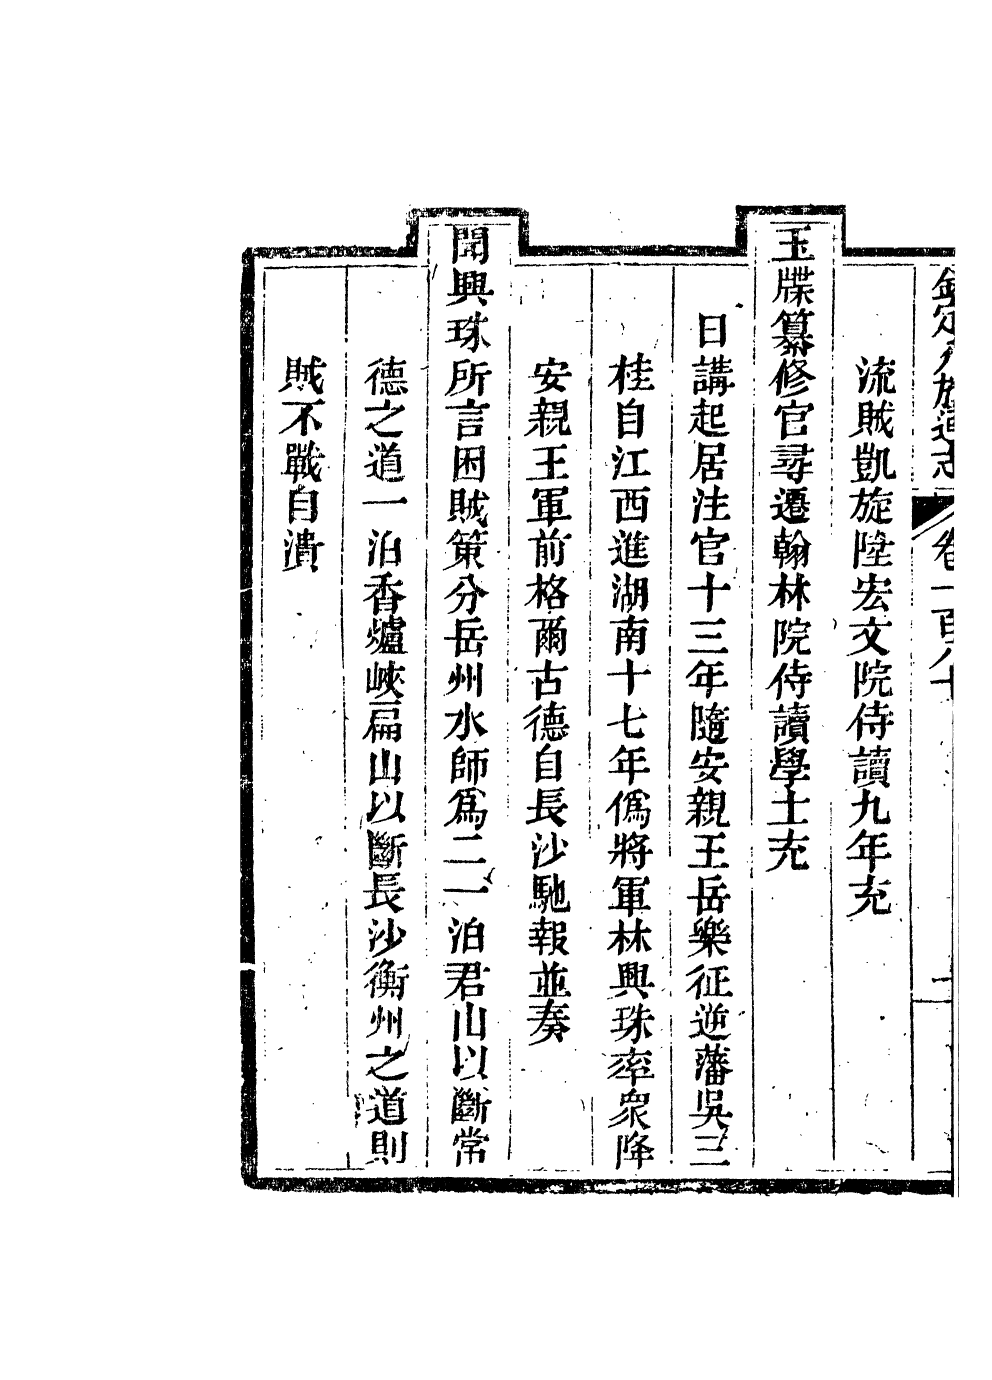 欽定八旗通志 卷一百八十 一
流賊凱旋陞宏文院侍讀九年充
玉牒纂修官尋遷翰林院侍讀學士充
日講起居注官十三年隨安親王岳樂征逆藩吳三
桂自江西進湖南十七年僞將軍林興珠率衆降
安親王軍前格爾古德自長沙馳報並奏
聞興珠所言困賊策分岳州水師爲二一泊君山以斷常
德之道一泊香爐峽扁山以斷長沙衡州之道則
賊不戰自潰